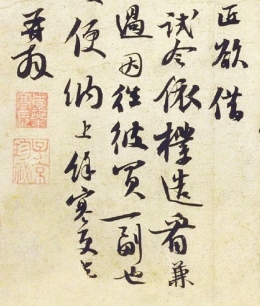 匠欲借
試令依樣造看兼
過因往彼買一副也
便納上餘寒更乞
再拜